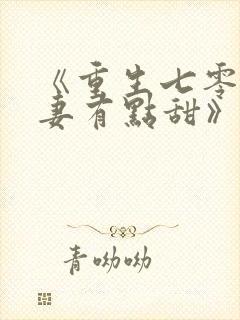 《重生七零
妻有點甜》
青呦呦